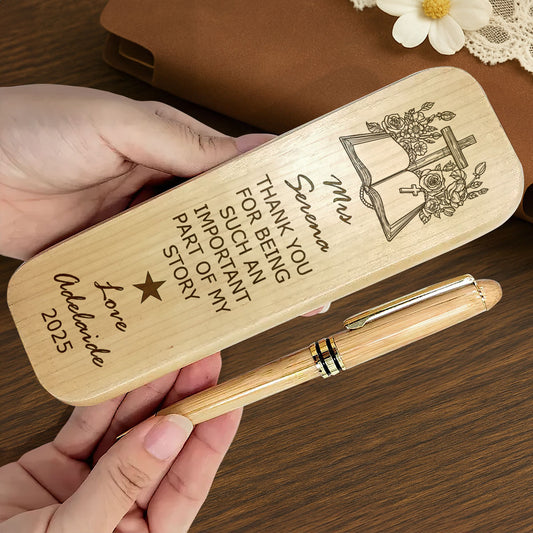 Mrs
Serena
THANK YOU
FOR BEING
SUCH AN
IMPORTANT
PART OF MY
STORY
Love
Adelaide
2025